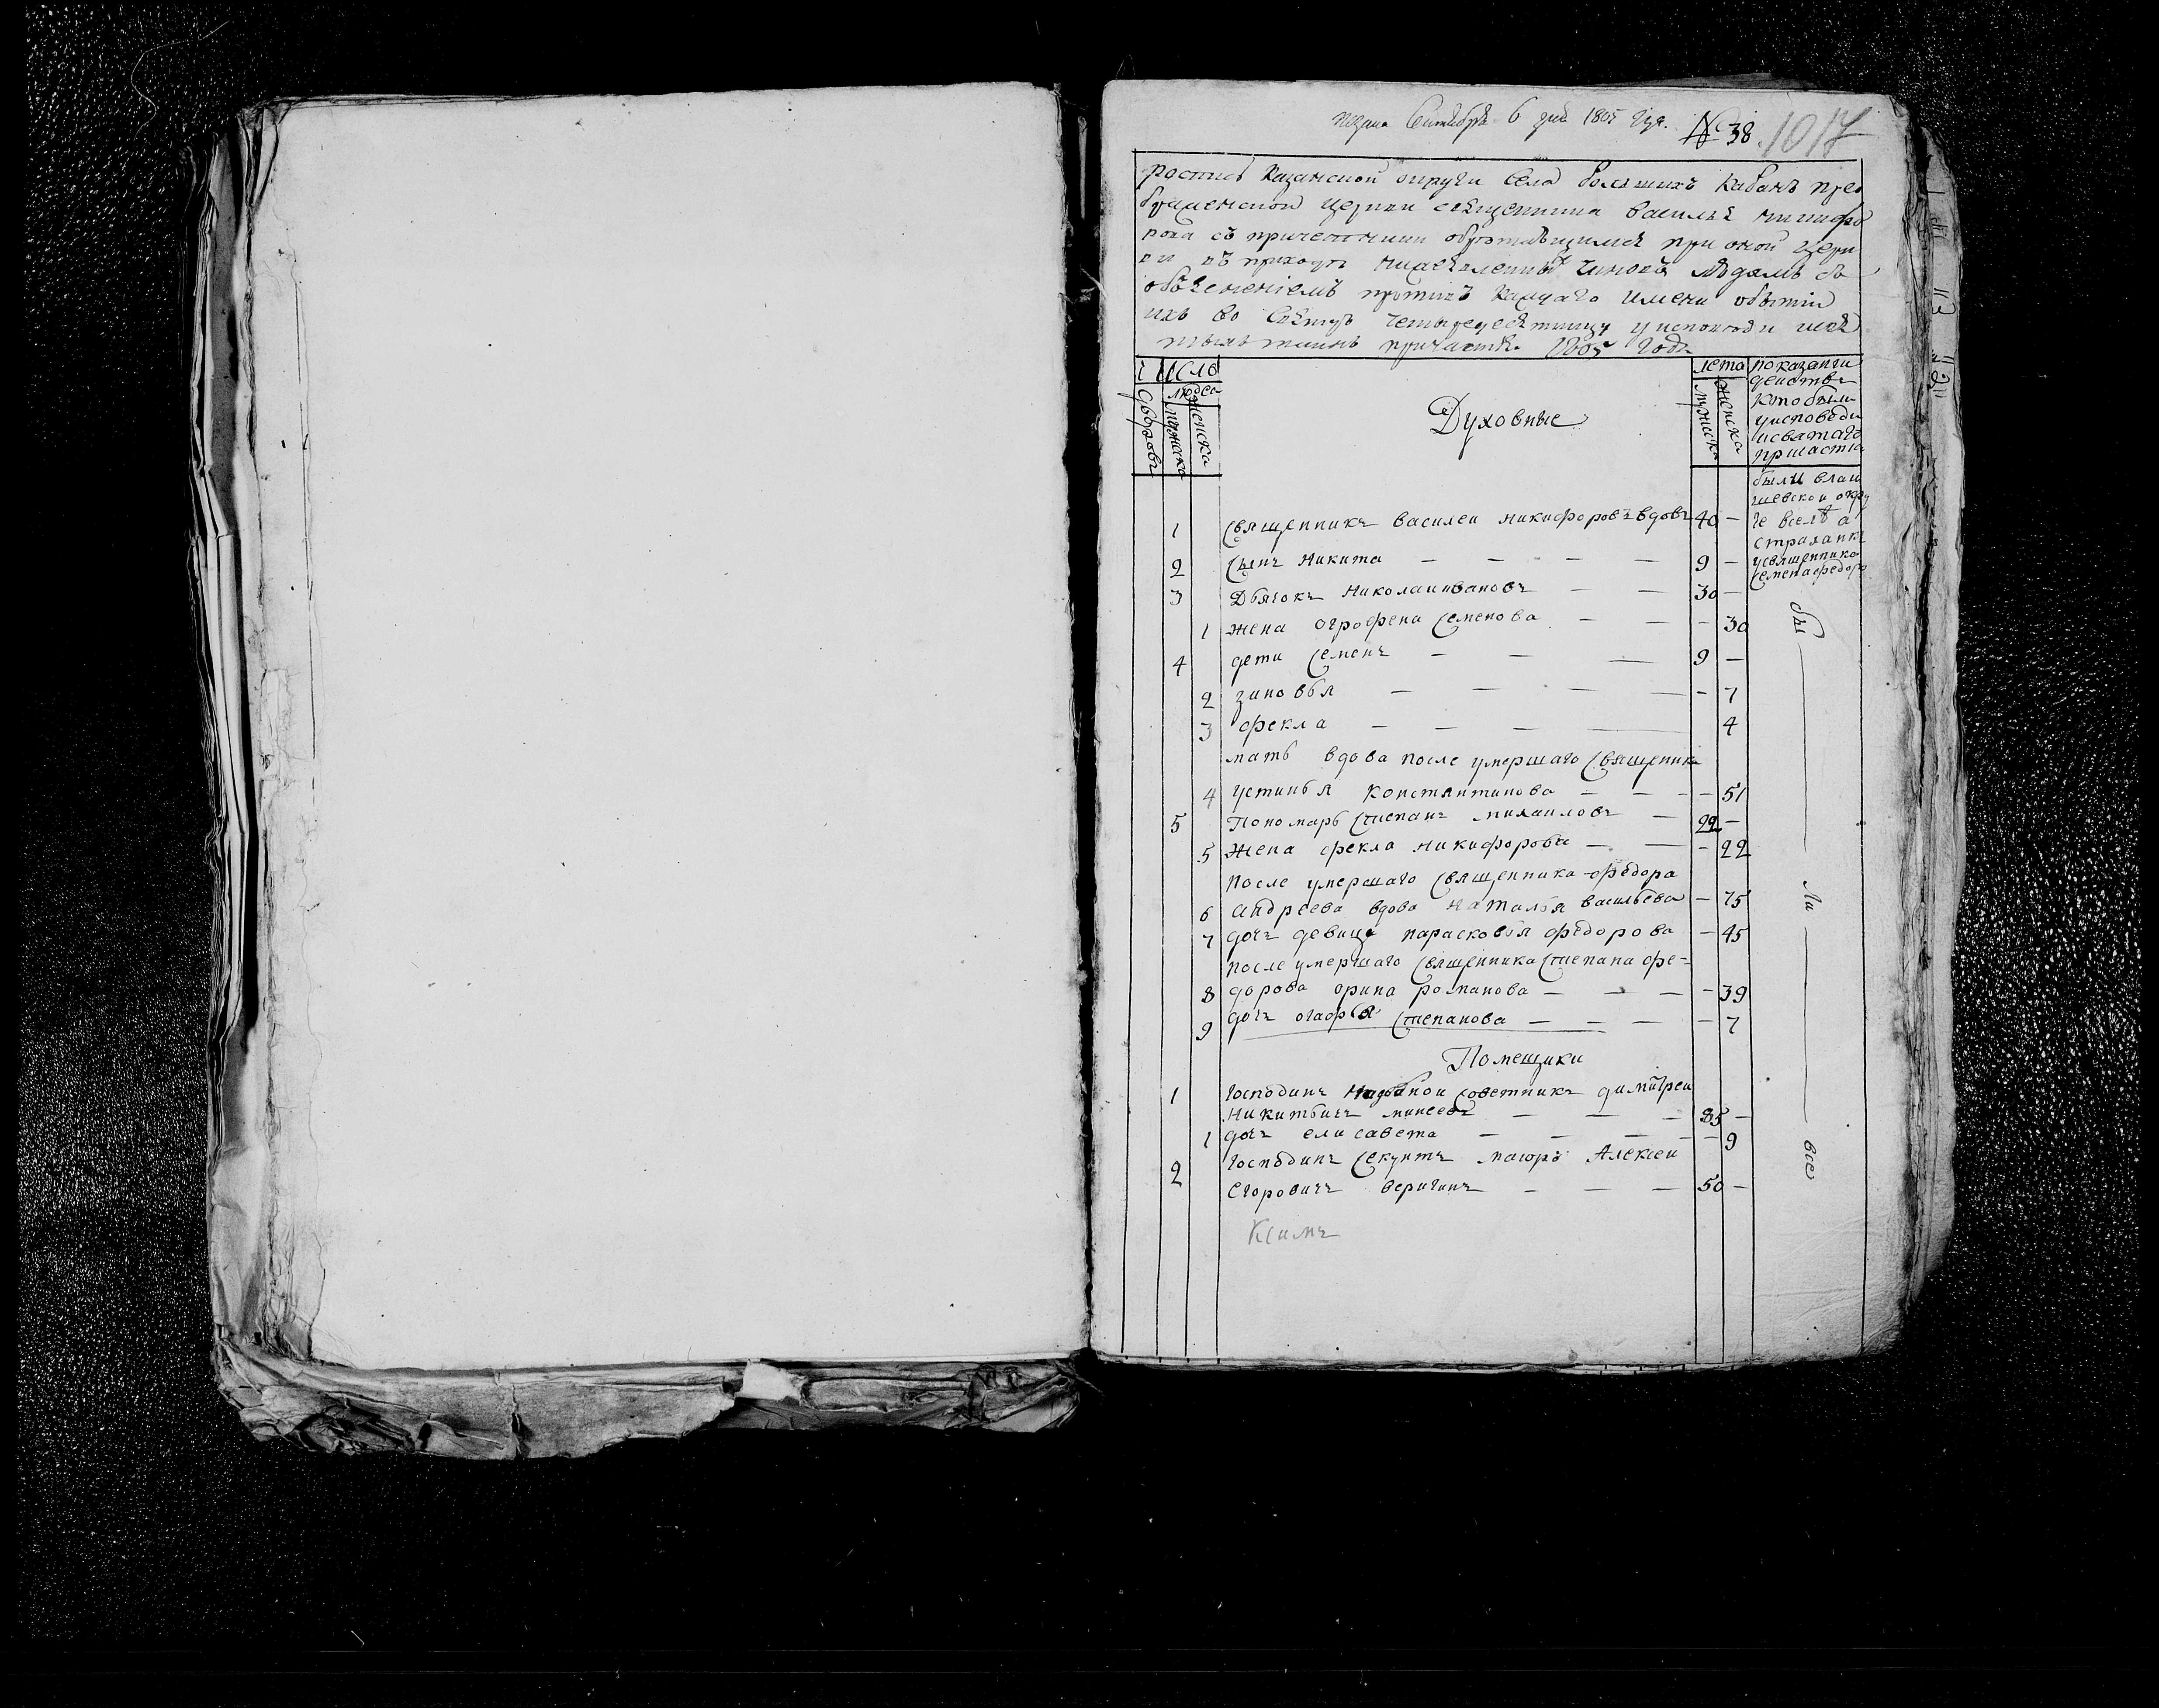 Сентября 6 дня 1805 года. № 38. 1017
роспись Казанской округи села большихъ Кабанъ прео
браженской церкви священника василья никифо
рова съ причетники обретающимся при оной церк
ви въ приходе нижеявленныхъ чиновъ людямъ съ
объяснениемъ противъ каждаго имени о бытии
ихъ во святую четыредесятницу у исповеди и свя
тыхъ таинъ причастия 1805 года
число
дворовъ
людей
мужска
женска
Духовные
лета
мужска
женска
показании
действъ
кто были
у исповеди
и святаго
причастия
были в лаи
шевской окру
ге в селѣ а
страхани
у священника
Семена федоро
1 Священникъ василеи никифоровъ вдовъ 40 —
2 Сынъ Никита — — — — 9 —
3 Дьячокъ Николаи ивановъ — — 30 —
1 жена огрофена Семенова — — — 30
4 дети Семенъ — — — 9 —
2 зиновья — — — — — 7
3 фекла — — — — 4
мать вдова после умершаго Священика
4 устинья Константинова — — — — 51
5 Пономарь Степанъ михаиловъ — 22 —
5 Жена фекла никифорова — — — 22
После умершаго Священника федора
6 андреева вдова наталья васильева — 75
7 дочь девица парасковья федорова — 45
После умершаго Священника Степана фе-
8 дорова орина романова — — — — 39
9 дочь огафья Степанова — — — — 7
Помещики
1 Господинъ надворной советникъ димитреи
Никитьичь — — — 85 —
1 дочь елисавета — — — — 9
2 Господинъ Секунтъ маиоръ Алексеи
Егоровичь веригинъ — — — 50 —
бы — ли — все